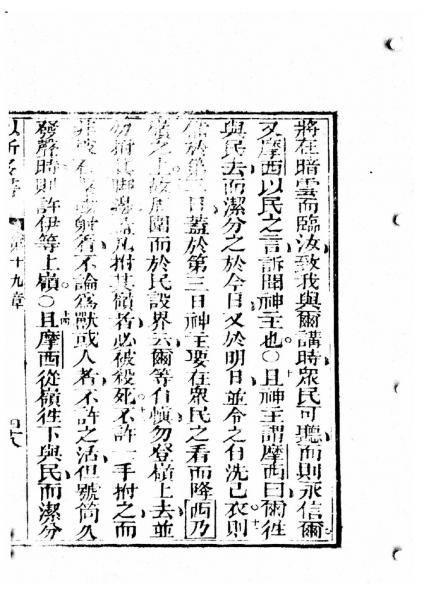 將在暗雲而臨汝致我與爾講時眾民可聽而則永信爾
又摩西以民之言訴聞神主也〇且神主謂摩西曰爾徃
與民去而潔分之於今日又於明日並令之自洗己衣則
於第三日蓋於第三日神主要在眾民之看而降西乃
嶺之上故周圍而於民設界云爾等自慎勿登嶺上去並
勿拊其脚邊蓋凡拊其嶺者必被殺死不許一手拊之而
非被石射着不論爲獸或人者不許之活但號筒久
發聲時則許伊等上嶺〇且摩西從嶺徃下與民而潔分
第十九章